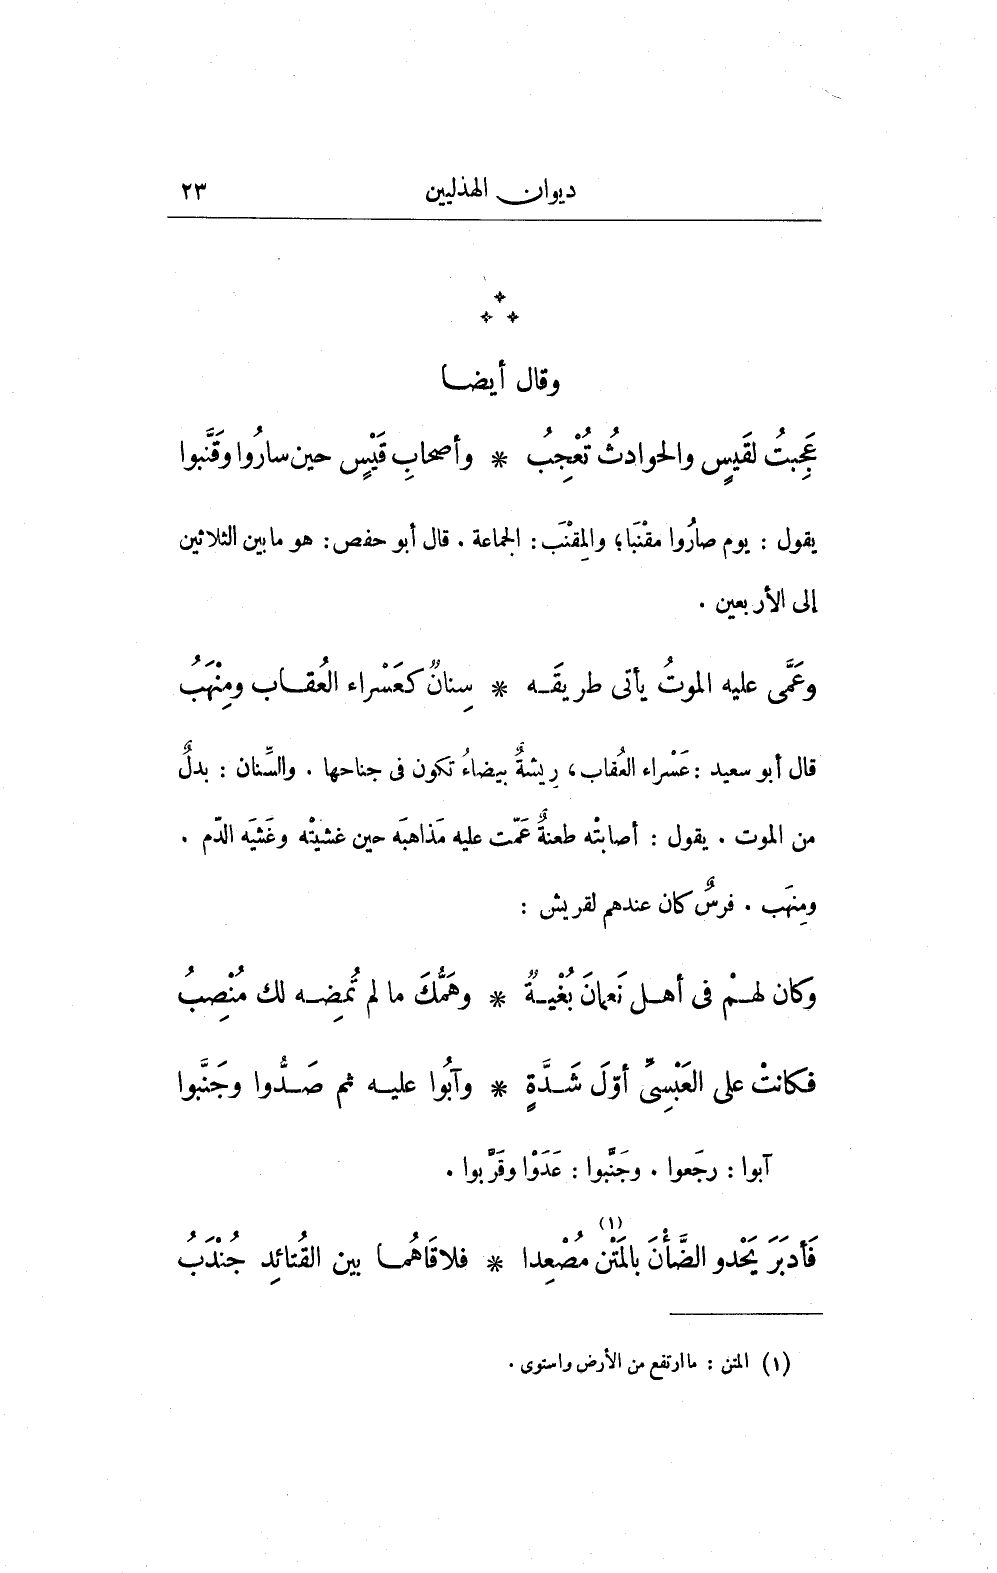 ديوان الهذليين ٢٣
وقال أيضا
عَجِبتُ لقَيسٍ والحوادثُ تُعْجِبُ * وأصحابِ قَيْسٍ حين سارُوا وقَنَّبوا
يقول : يوم صارُوا مقْنَبا؛ والمِقْنَب : الجماعة . قال أبو حفص : هو ما بين الثلاثين
إلى الأربعين .
وعَمَّى عليه الموتُ يأتى طريقَـه * سِنانٌ كعَسْراء العُقـاب ومِنْهَبُ
قال أبو سعيد : عَسْراء العُقاب، رِيشةٌ بيضاءُ تكون فى جناحها . والسِّنان : بدلٌ
من الموت . يقول : أصابتْه طعنةٌ عَمّت عليه مَذاهبَه حين غشيتْه وغَشيَه الدّم .
ومِنهَب . فرسٌ كان عندهم لقريش :
وكان لهـمْ فى أهـل نَعمانَ بُغْيـةٌ * وهَمُّكَ ما لم تُمضِـه لك مُنْصِبُ
فكانتْ على العَبْسِىِّ أوّلَ شَـدَّةٍ * وآبُوا عليـه ثم صَـدُّوا وجَنَّبوا
آبوا : رجَعوا . وجَنَّبوا : عَدَوْا وقَرَّبوا .
فَأدبَرَ يَحْدو الضَّأْنَ بالمَتْنِ (١) مُصْعِدا * فلاقَاهُمـا بين القُتائدِ جُنْدَبُ
(١) المتن : ما ارتفع من الأرض واستوى .